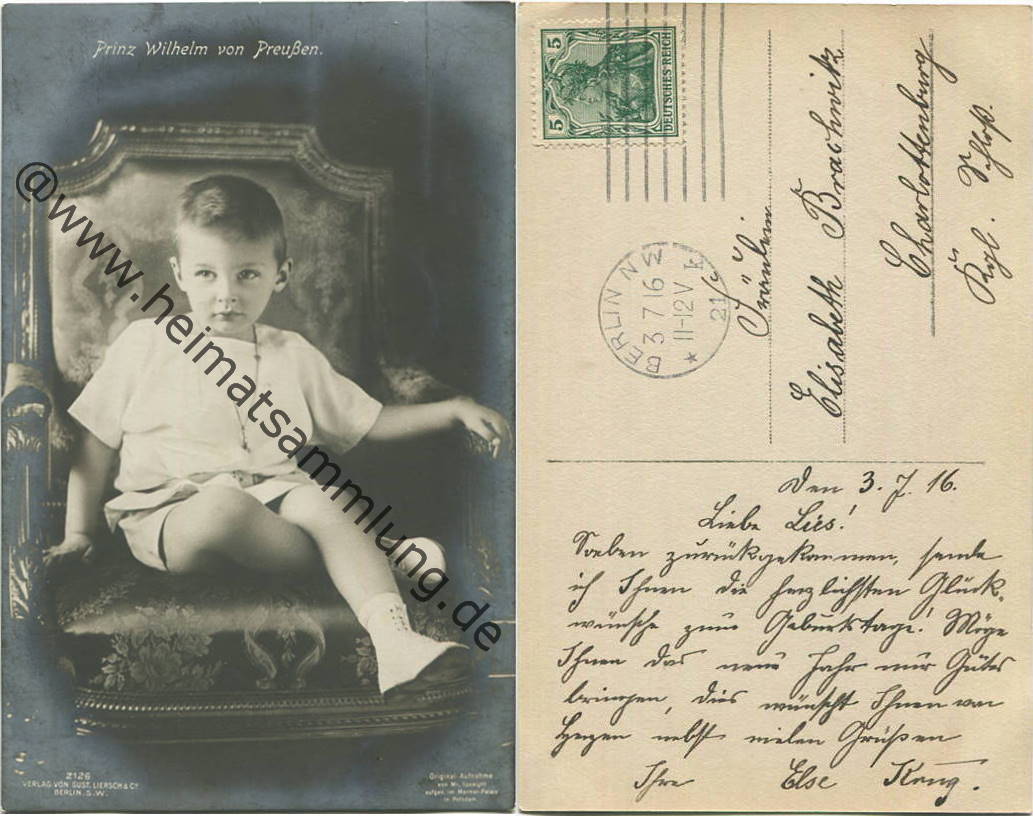 Prinz Wilhelm von Preußen.
@www.heimatsammlung.de
2126
VERLAG VON GUST. LIERSCH & Cº
BERLIN. S.W.
Original-Aufnahme
von Mr. Speaight
aufgen. im Marmor-Palais
in Potsdam
5 DEUTSCHES REICH 5
BERLIN NW
3 7 16
11-12 V
* 21
Fräulein
Elisabeth Brachwitz
Charlottenburg
Kgl. Schloß.
Den 3. 7. 16.
Liebe Lies!
Soeben zurückgekommen, sende
ich Ihnen die herzlichsten Glück-
wünsche zum Geburtstage! Möge
Ihnen das neue Jahr nur Gutes
bringen, dies wünscht Ihnen von
Herzen nebst vielen Grüßen
Ihre Else